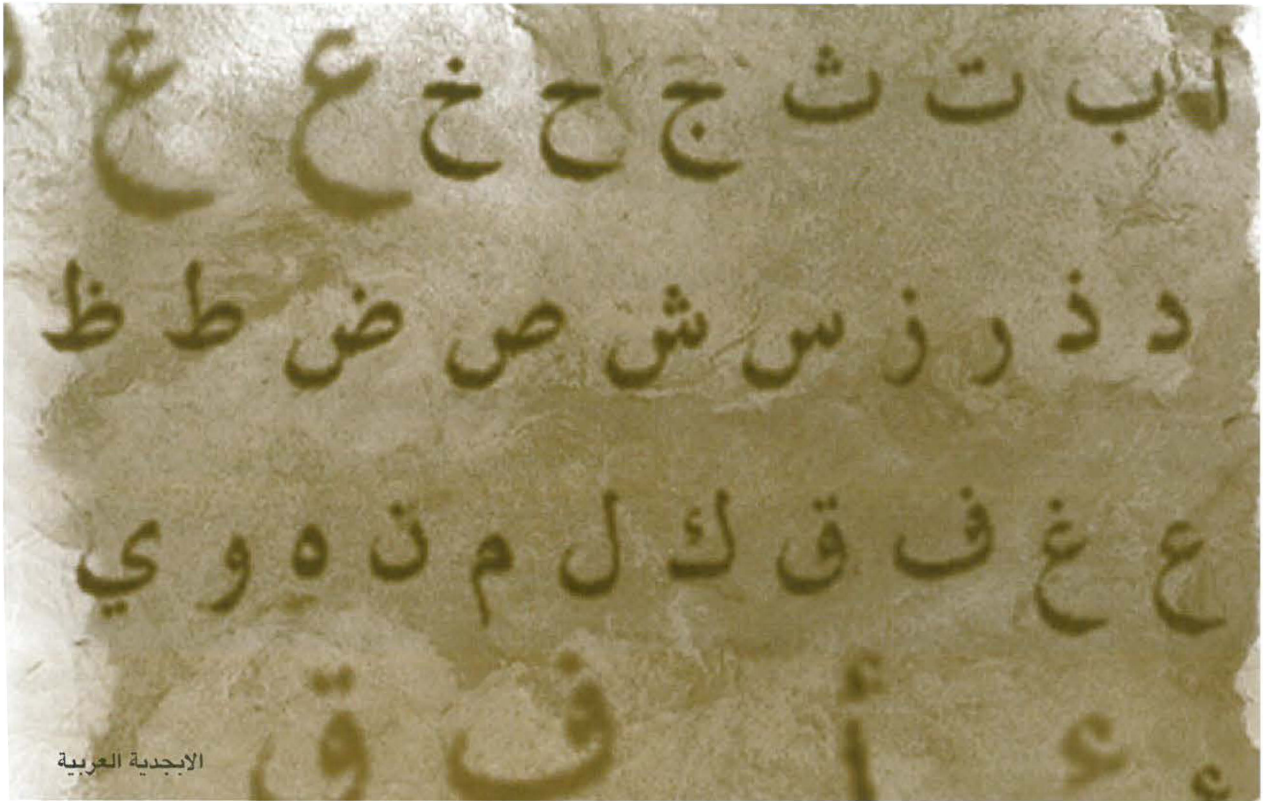 أ ب ت ث ج ح خ ع غ
د ذ ر ز س ش ص ض ط ظ
ع غ ف ق ك ل م ن ه و ي
ء أ ف ق
الابجدية العربية